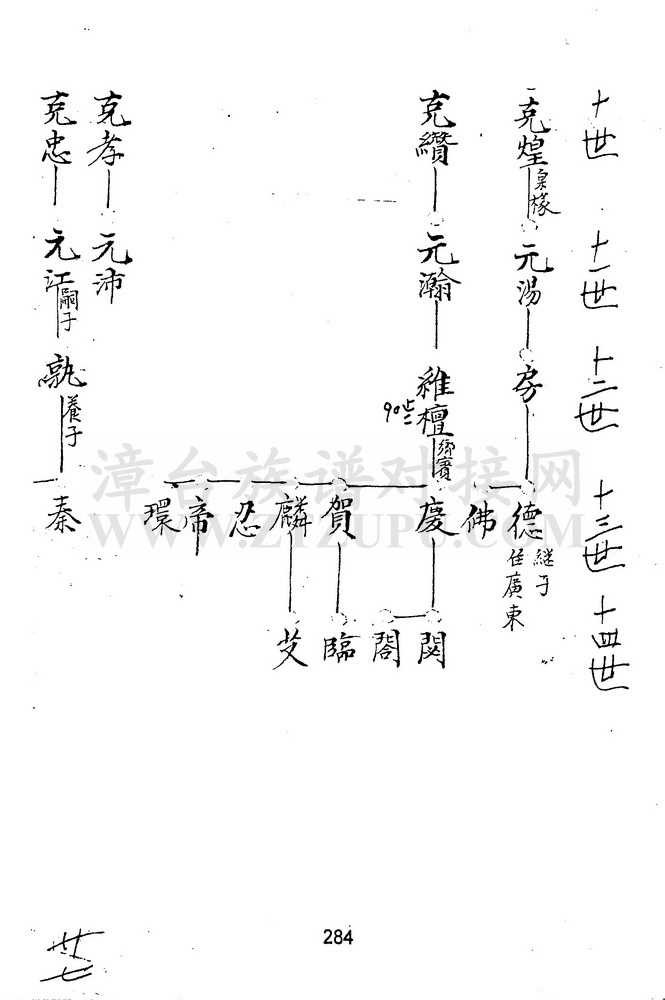 十世
十一世
十二世
十三世
十四世
克煌
泉椽
元湯
房
德
繼子
住廣東
佛
克纘
元瀚
稚檀
鄉賓
慶
賀
麟
忍
帝
環
閔
閣
臨
艾
克孝
元沛
克忠
元江
嗣子
養子
秦
漳台族谱对接网
WWW.ZTZUPU.COM
284
卅七